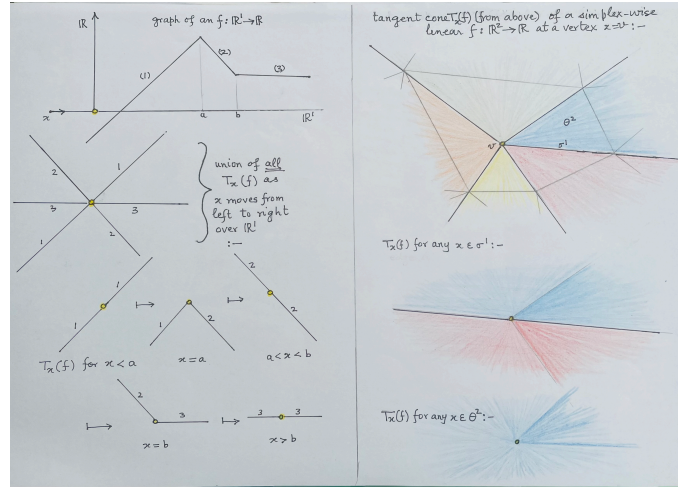 graph of an f: ℝ¹→ℝ
ℝ
(1)
(2)
(3)
x
a
b
ℝ¹
2
1
3
3
1
2
union of all
Tx(f) as
x moves from
left to right
over ℝ¹
:-
1
1
↦
1
2
↦
2
2
Tx(f) for x < a
x = a
a < x < b
↦
2
3
x = b
↦
3
3
x > b
tangent cone Tx(f) (from above) of a simplex-wise
linear f: ℝ²→ℝ at a vertex x=v :-
θ²
v
σ¹
Tx(f) for any x ∈ σ¹ :-
Tx(f) for any x ∈ θ² :-